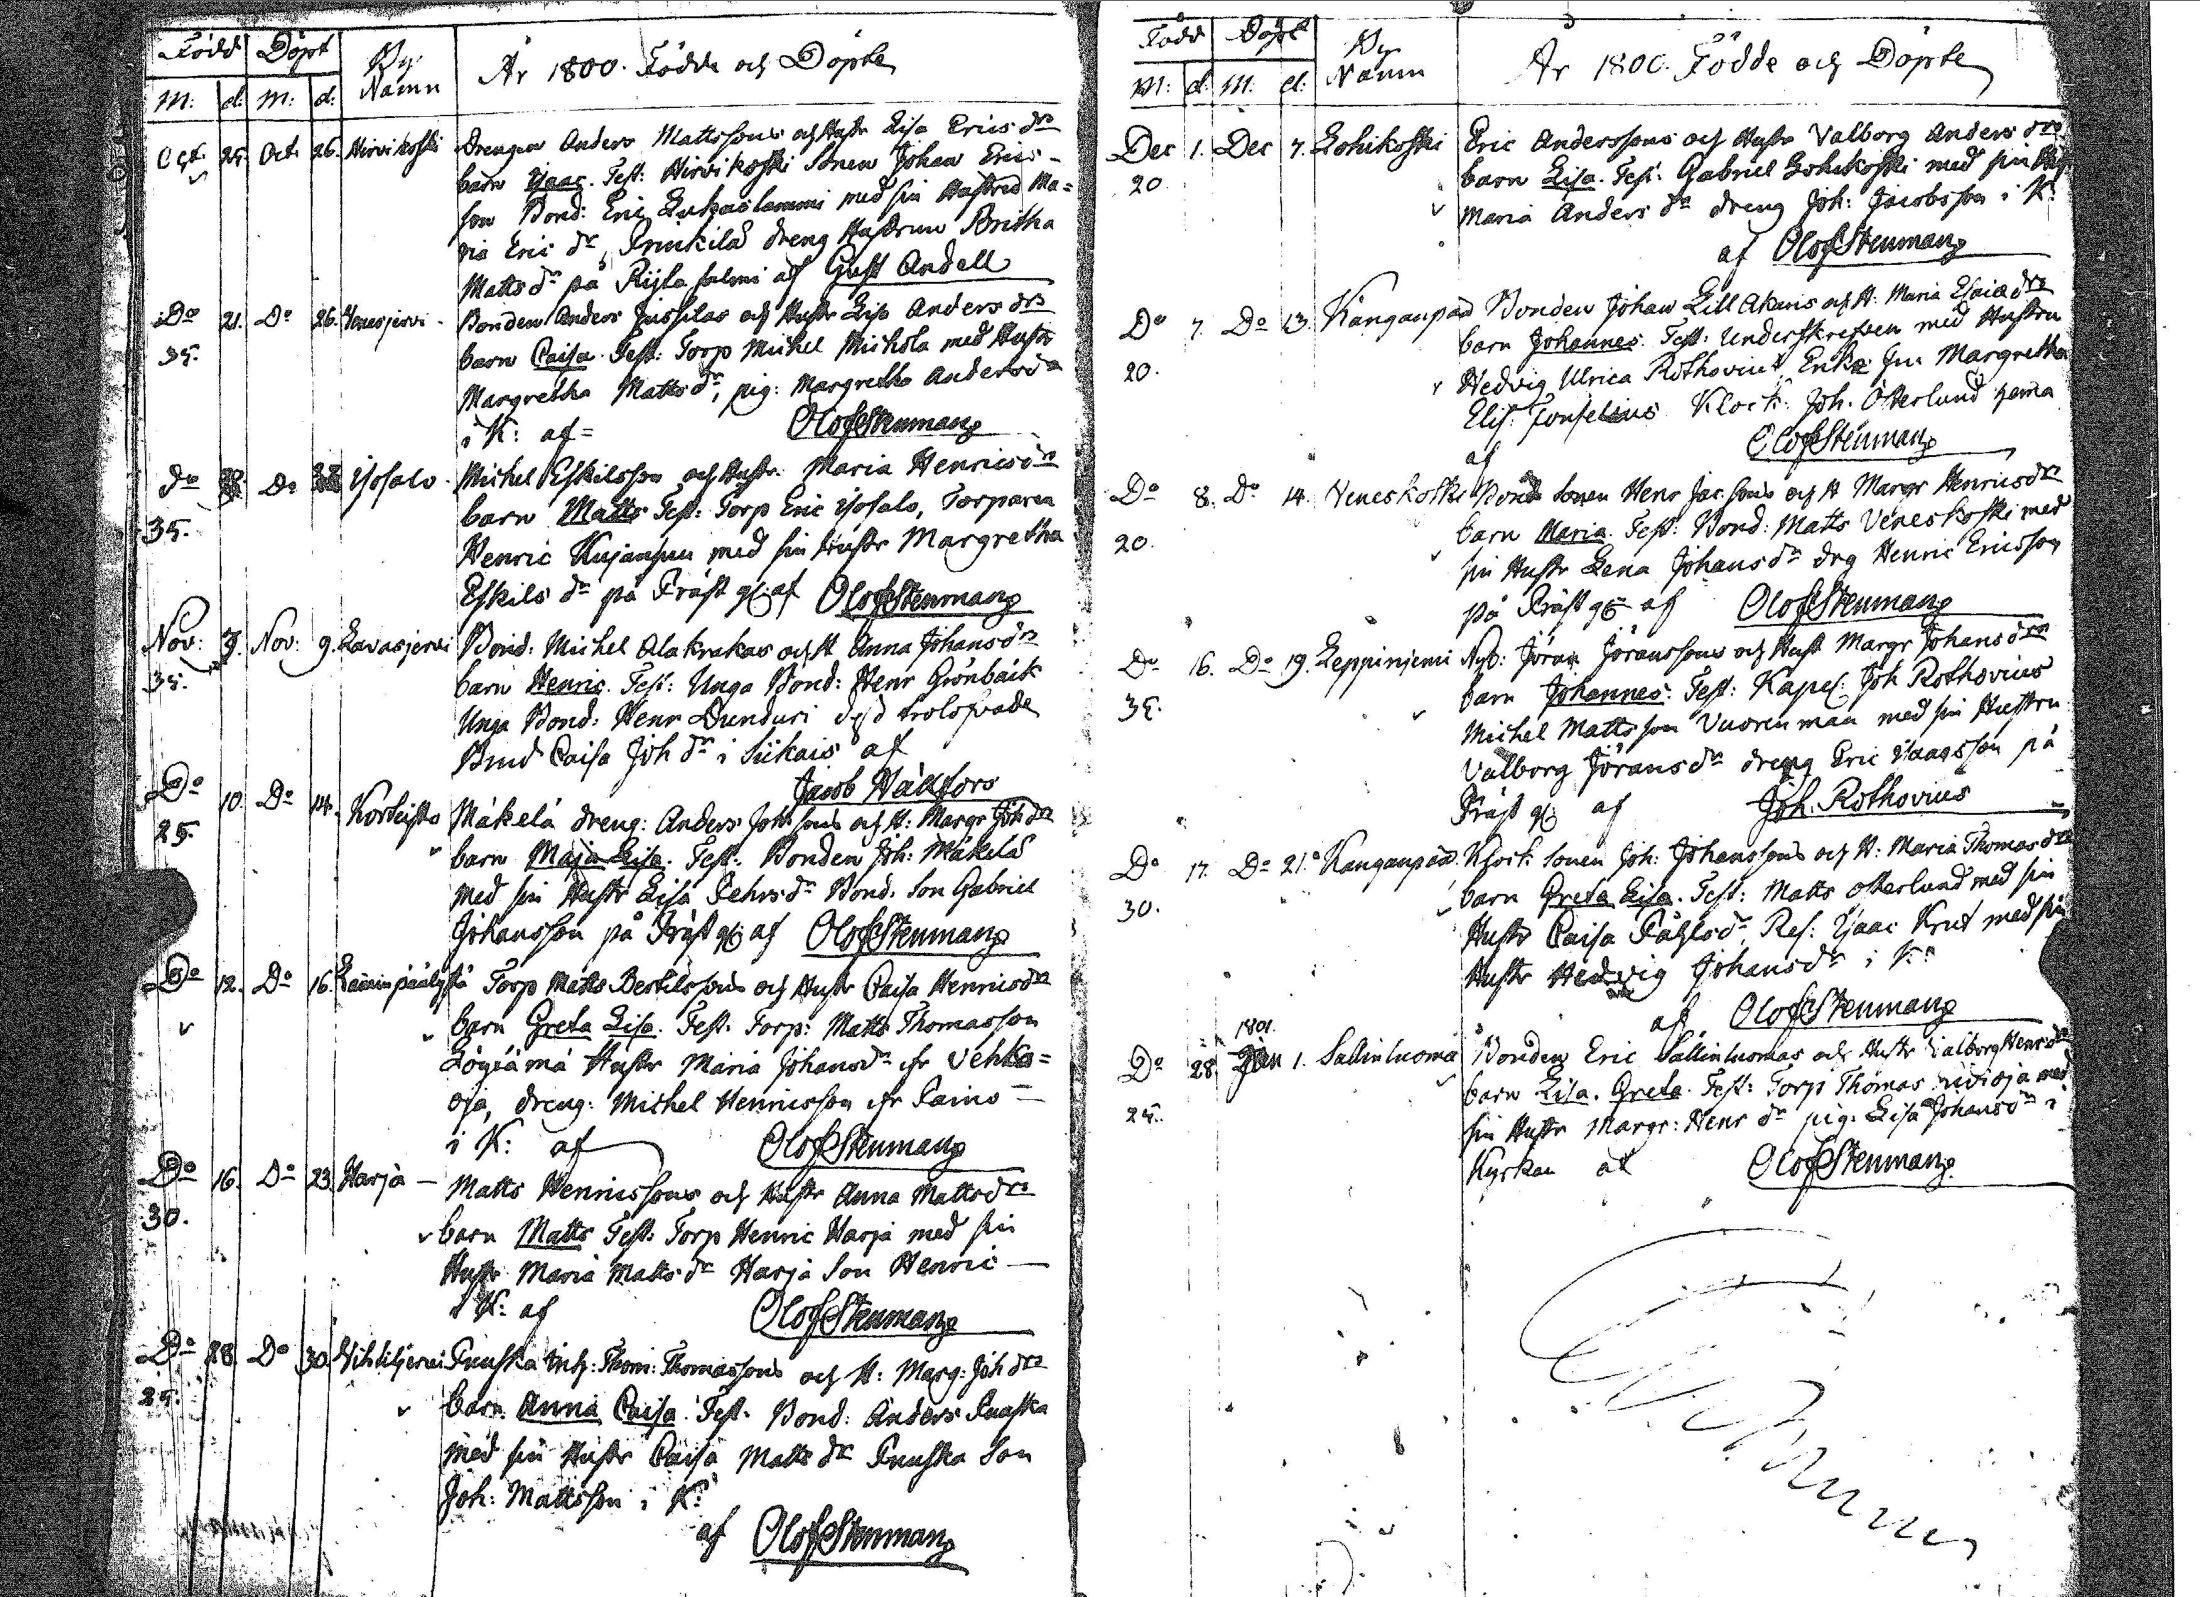 Född Döpt By Namn År 1800. Födde och Döpte
M: d: M: d:
Oct. 25. Oct. 26. Hirvikoski Drengen Anders Mattssons och Hustr Lisa Erics drs
barn Isaac. Test: Hirvikoski Sonen Johan Erics-
son Bond: Eric med sin Hustru Ma=
ria Eric dr, dreng Hustrun Britha
Matts dr på af Gust Andell
Do 21. Do 26. Venesjervi Bonden Anders Jussilas och Hustr Lisa Anders drs
35. barn Caisa. Test: Torp Michel Mickola med Hustr
Margretha Matts dr, pig: Margretha Anders dr
i K: af = Olof Stenman
Do Do Ysosalo Michel Eskilsson och Hustr: Maria Henrics drs
35. barn Matts Test: Torp Eric Ysosalo, Torparen
Henric Kujanpuu med sin Hustr Margretha
Eskils dr på Präst gl: af Olof Stenman
Nov: 9. Nov: 9. Lavasjervi Bond: Michel Alakrakas och H Anna Johans drs
35. barn Henric. Test: Unga Bond: Henr Grönbäck
Unga Bond: Henr Dunduri dess trolofvade
Brud Caisa Joh dr i Siikais af
Jacob Hällfors
Do 10. Do 14. Mäkelä dreng: Anders Joh sons och H: Margr Joh drs
25. barn Maja Lisa. Test: Bonden Joh: Mäkelä
med sin Hustr Lisa Pehrs dr Bond. Son Gabriel
Johansson på Präst gl: af Olof Stenman
Do 12. Do 16. Torp Matts Bertilssons och Hustr Caisa Henrics drs
barn Greta Lisa. Test. Torp: Matts Thomasson
Hustr Maria Johans dr ifr Vehka=
oja, dreng: Michel Henricsson ifr Paino
i K: af Olof Stenman
Do 16. Do 23. Harja Matts Henricssons och Hustr Anna Matts drs
30. barn Matts Test: Torp Henric Harja med sin
Hustr Maria Matts dr Harja Son Henric
i K: af Olof Stenman
Do 28. Do 30. Thom: Thomassons och H: Marg: Joh drs
25. barn Anna Caisa. Test. Bond: Anders Puuska
med sin Hustr Caisa Matts dr Puuska Son
Joh: Mattsson i K:
af Olof Stenman
Född Döpt By Namn År 1800. Födde och Döpte
M: d: M: d:
Dec 1. Dec 7. Lohikoski Eric Anderssons och Hustr Valborg Anders drs
20 barn Lisa. Test: Gabriel Lohikoski med sin
Maria Anders dr dreng Joh: Jacobsson i K:
af Olof Stenman
Do 7. Do 13. Kanganpää Bonden Johan Lill Akaris och H: Maria Esaiæ drs
20. barn Johannes. Test: Underskrefven med Hustru
Hedvig Ulrica Rothovius, Enke fru Margretha
Elis: Klock: Joh. Österlund hema
af Olof Stenman
Do 8. Do 14. Veneskoski Bond Sonen Henr Jac: sons och H Margr Henrics drs
20. barn Maria. Test: Bond: Matts Veneskoski med
sin Hustr Lena Johans dr drg Henric Ericsson
på Präst gl: af Olof Stenman
Do 16. Do 19. Leppinjemi Nyb: Jöran Jöranssons och Hust Margr Johans drs
35. barn Johannes. Test: Kapel: Joh Rothovius
Michel Mattsson Vuorenmaa med sin Hustru
Valborg Jörans dr dreng Eric Isaacsson på
Präst gl: af Joh. Rothovius
Do 17. Do 21. Kanganpää Klock: Sonen Joh: Johanssons och H: Maria Thomas drs
30. barn Greta Lisa. Test: Matts Österlund med sin
Hustr Caisa dr, Ref: Isaac Krut med sin
Hustr Hedvig Johans dr i K:
af Olof Stenman
1801.
Do 28. Jan 1. Sallinluoma Bonden Eric Sallinluomas och Hustr Valborg Henr drs
25. barn Lisa. Greta. Test: Torp Thomas med
sin Hustr Margr: Henr dr pig: Lisa Johans dr i
Kyrkan af Olof Stenman